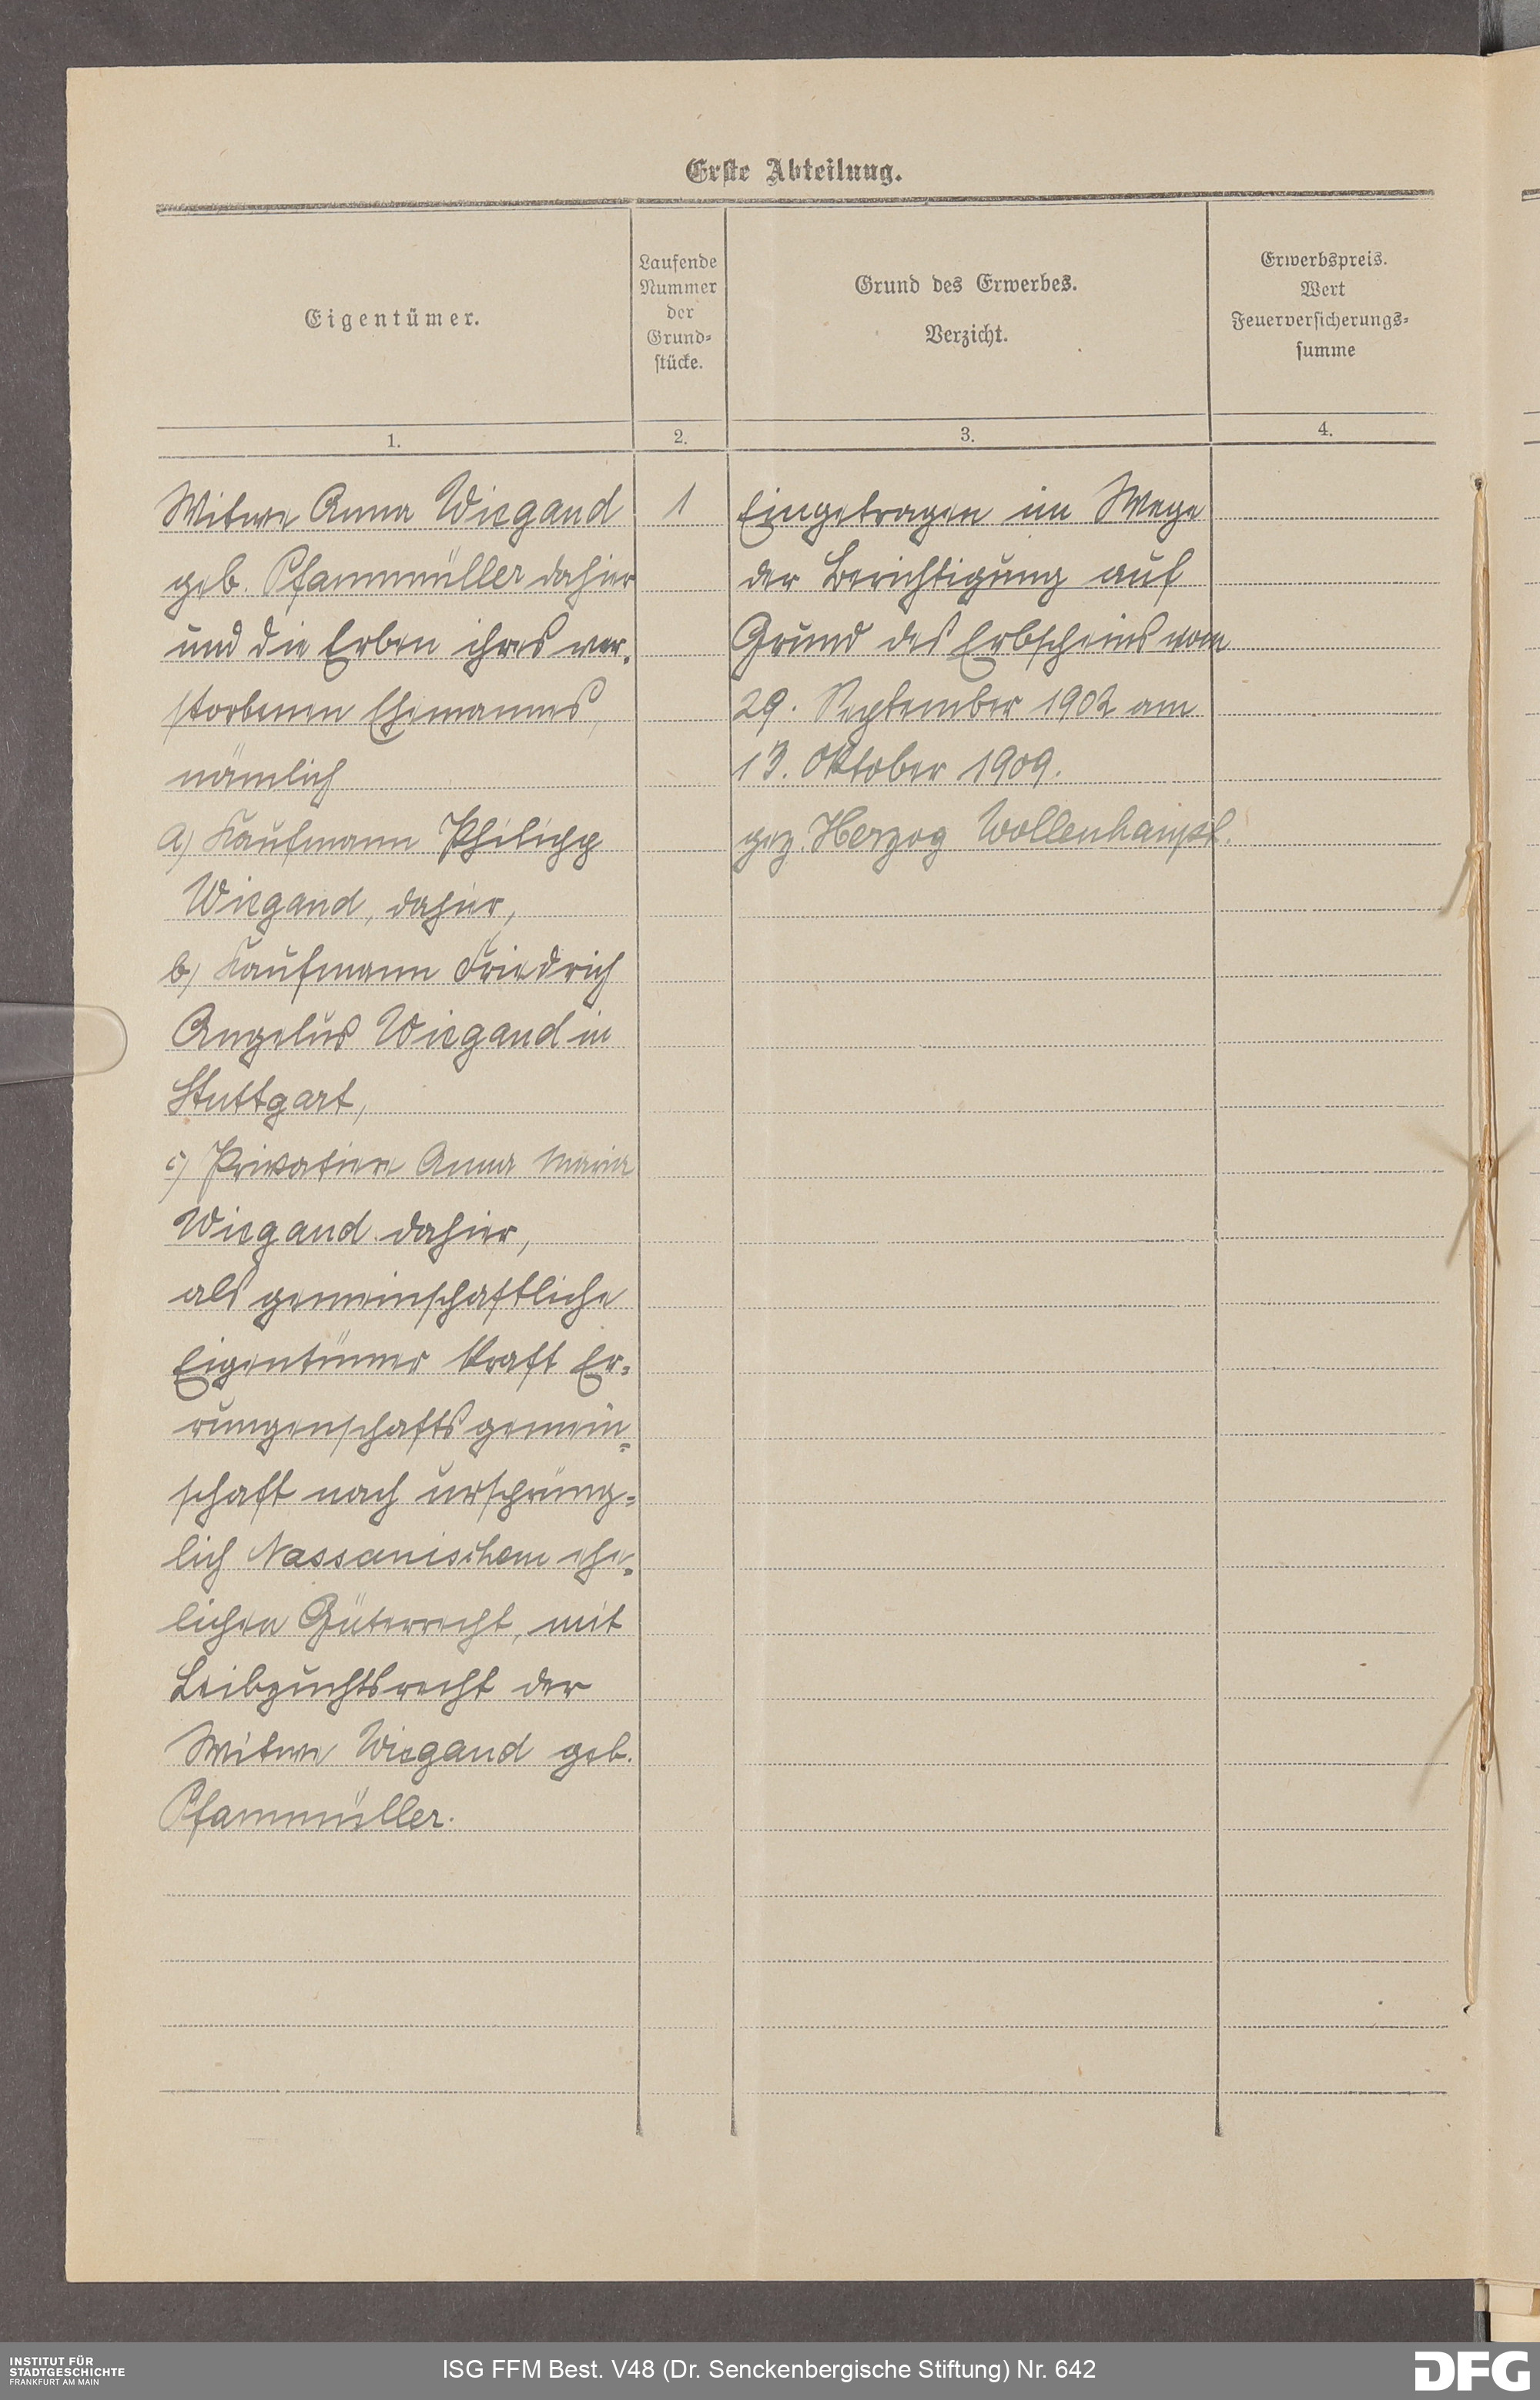 Erste Abteilung.
Eigentümer.
Laufende
Nummer
der
Grund=
stücke.
Grund des Erwerbes.
Verzicht.
Erwerbspreis.
Wert
Feuerversicherungs=
summe
1.
2.
3.
4.
Witwe Anna Wiegand
geb. Pfannmüller dahier
und die Erben ihres ver=
storbenen Ehemannes,
nämlich
a) Kaufmann Philipp
Wiegand, dahier,
b) Kaufmann Friedrich
Angelus Wiegand in
Stuttgart,
c) Privatiere Anna Maria
Wiegand dahier,
als gemeinschaftliche
Eigentümer kraft Er=
rungenschaftsgemein=
schaft nach ursprüng=
lich Nassauischem ehe=
lichen Güterrecht, mit
Leibzuchtsrecht der
Witwe Wiegand geb.
Pfannmüller.
1
Eingetragen im Wege
der Berichtigung auf
Grund des Erbscheins vom
29. September 1902 am
13. Oktober 1909.
gez. Herzog Wollenhaupt.
INSTITUT FÜR
STADTGESCHICHTE
FRANKFURT AM MAIN
ISG FFM Best. V48 (Dr. Senckenbergische Stiftung) Nr. 642
DFG